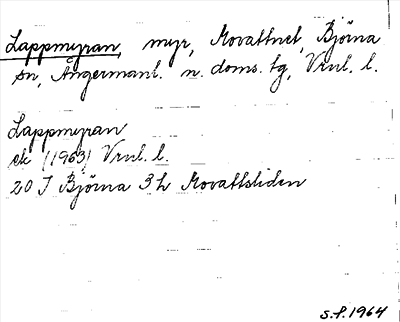 Lappmyran, myr, Movattnet, Björna
sn, Ångermanl. n. doms. tg, Vrnl. l.
Lappmyran
ek (1963) Vrnl. l.
20 J Björna 3 h Movattsliden
s.f. 1964